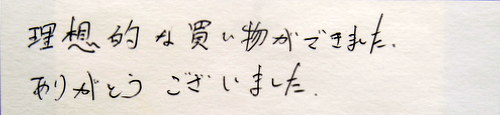 理想的な買い物ができました.
ありがとうございました.